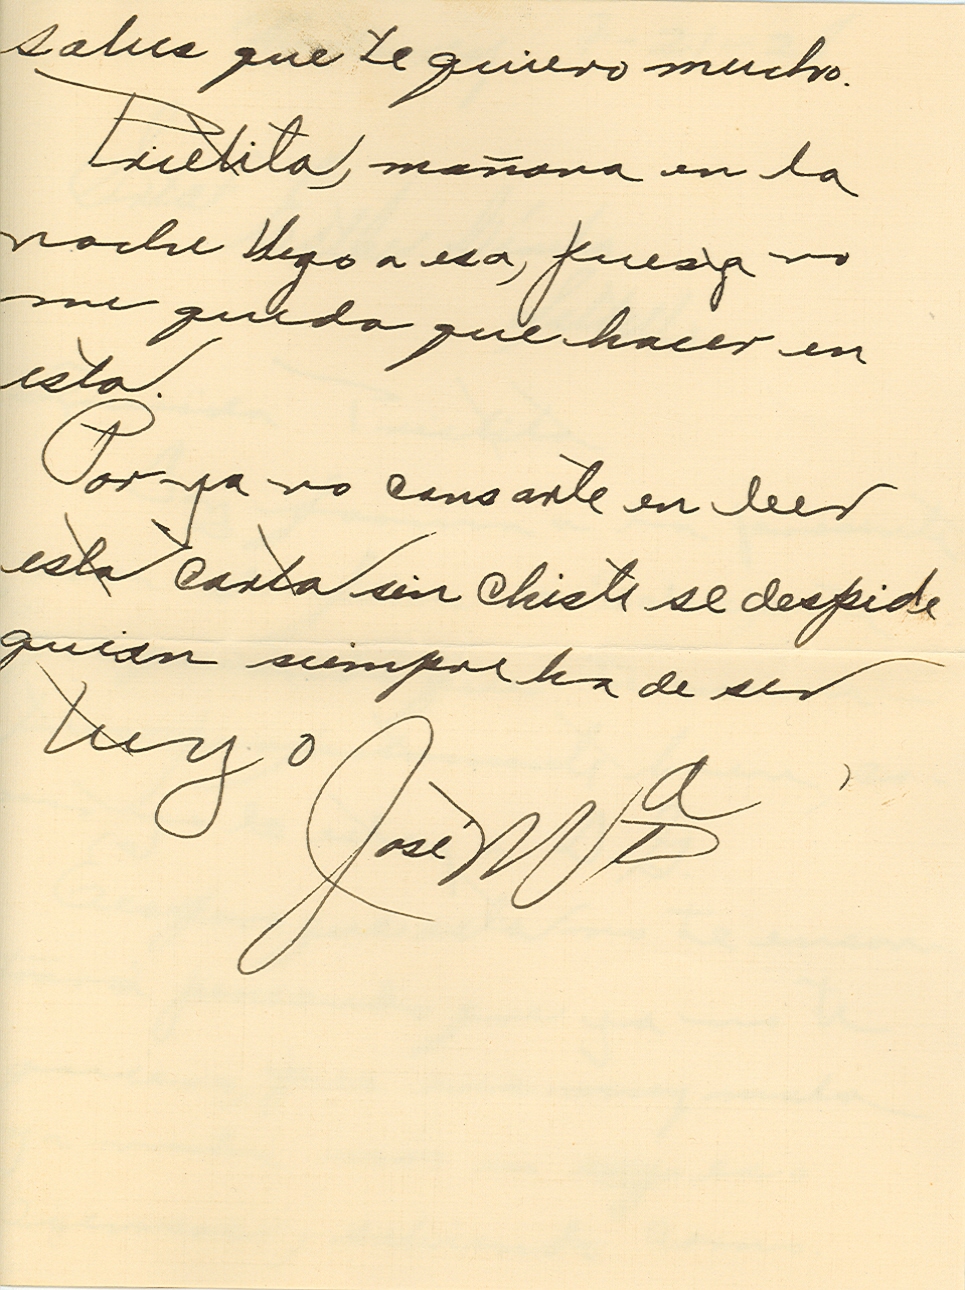 sabes que te quiero mucho.
Prietita, mañana en la
noche llego a esa, pues ya no
me queda que hacer en
esta.
Por ya no cansarte en leer
esta carta sin chiste se despide
quien siempre ha de ser
tuyo
José Ma